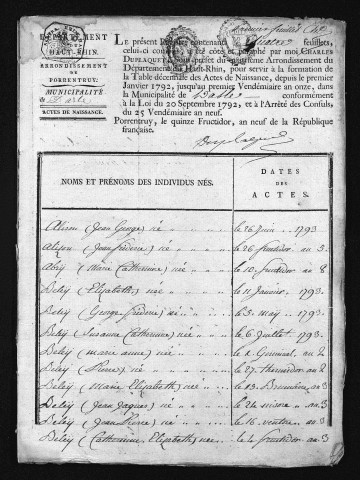 DÉPARTEMENT
DU
HAUT-RHIN.
ARRONDISSEMENT
DE
PORRENTRUY.
MUNICIPALITÉ
ACTES DE NAISSANCE.
Le présent Registre contenant feuillets,
celui-ci compris, a été coté et paraphé par moi CHARLES
DUPLAQUET, Sous-préfet du quatrième Arrondissement du
Département du Haut-Rhin, pour servir à la formation de
la Table décennale des Actes de Naissance, depuis le premier
Janvier 1792, jusqu'au premier Vendémiaire an onze, dans
la Municipalité de conformément
à la Loi du 20 Septembre 1792, et à l'Arrêté des Consuls,
du 25 Vendémiaire an neuf.
Porrentruy, le quinze Fructidor, an neuf de la République
française.
NOMS ET PRÉNOMS DES INDIVIDUS NÉS.
DATES
DES
ACTES.
(Jean George) né le 26 Juin 1793
(Jean frédéric) né le 26 fructidor an 3
(Marie Catherine) née le 10 fructidor an 8
(Elizabeth) née le 11 Janvier 1793
(George frédéric) né le 3 may 1793
(Susanne Catherine) née le 6 Juillet 1793
(marie anne) née le 2 Germinal an 2
(Pierre) né le 27 thermidor an 2
(Marie Elizabeth) née le 13 Brumaire an 3
(Jean Jaques) né le 24 nivose an 3
(Jean Pierre) né le 16 ventose an 3
(Catherine Elizabeth) née le 4 fructidor an 3